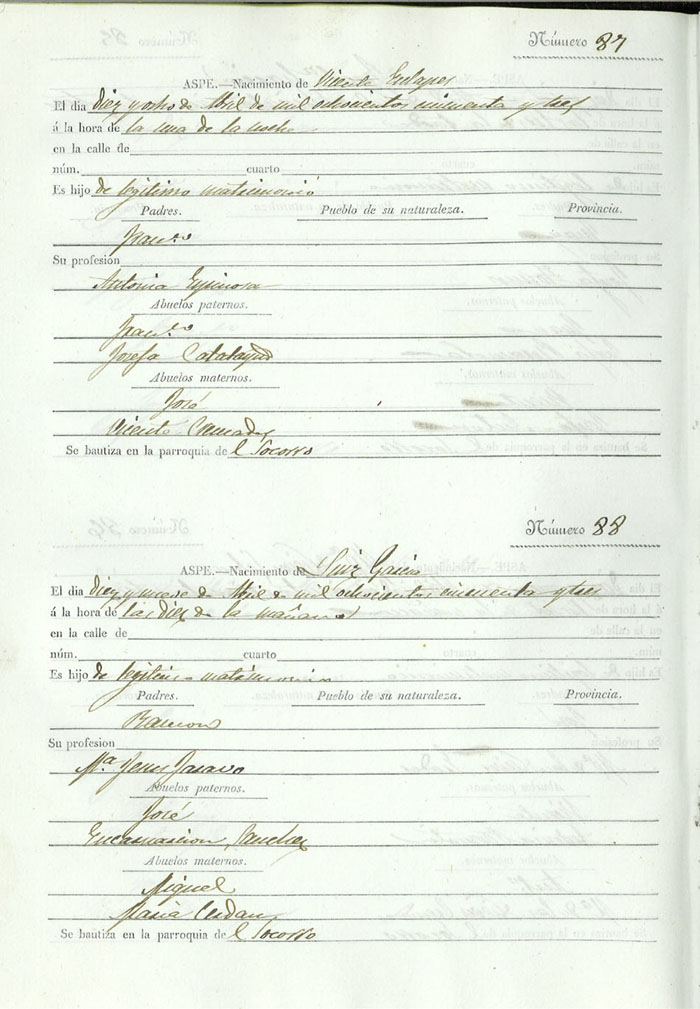 Número 87
ASPE.—Nacimiento de Vicente
El dia diez y ocho de Abil de mil ochocientos cincuenta y tres
á la hora de la una de la noche
en la calle de
núm. cuarto
Es hijo de legitimo matrimonio
Padres. Pueblo de su naturaleza. Provincia.
Franco
Su profesión
Antonia Espinosa
Abuelos paternos.
Franco
Josefa Calatayud
Abuelos maternos.
José
Vicenta
Se bautiza en la parroquia de l Socorro
Número 88
ASPE.—Nacimiento de Luiz
El dia diez y nueve de Abil de mil ochocientos cincuenta y tres
á la hora de las diez de la mañana
en la calle de
núm. cuarto
Es hijo de legitimo matrimonio
Padres. Pueblo de su naturaleza. Provincia.
Ramon
Su profesion
Ma Jesus
Abuelos paternos.
José
Encarnacion Sanchez
Abuelos maternos.
Miguel
Maria Cerdan
Se bautiza en la parroquia de l Socorro